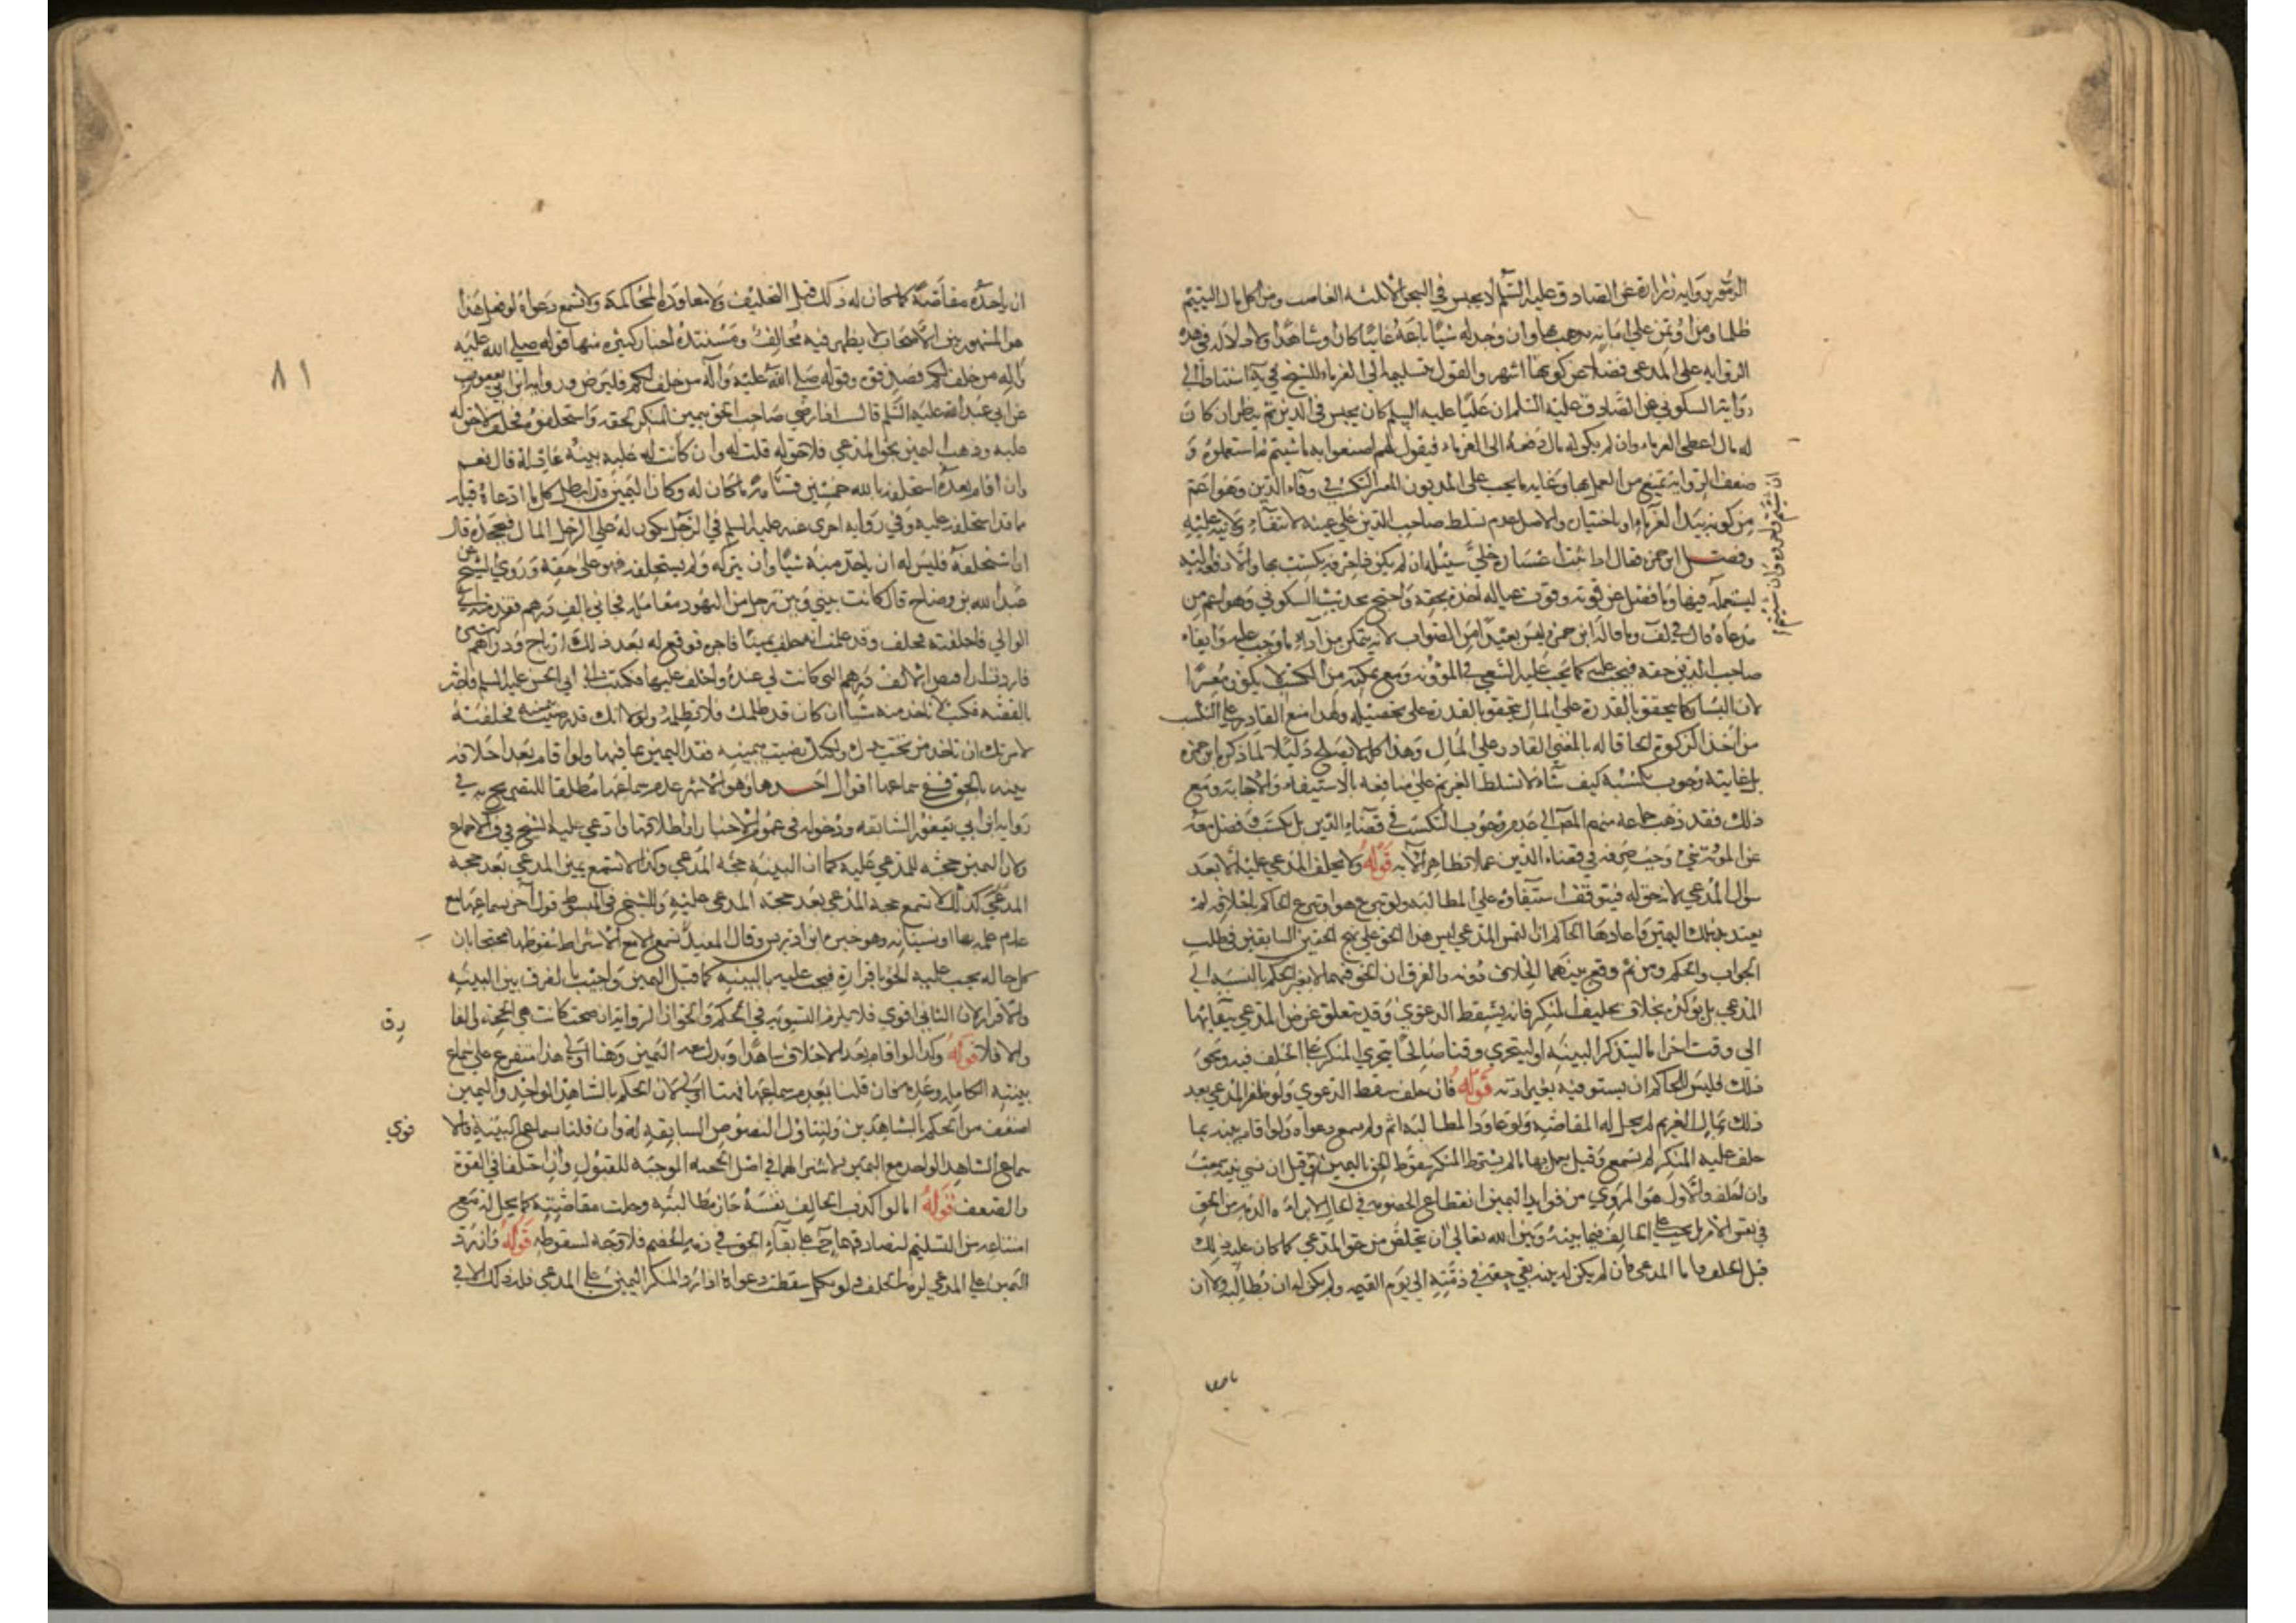 الزهري رواية زرارة عن الصادق عليه السلم لا يحبس في السجن الا ثلثه الغاصب ومن اكل مال اليتيم
ظلما ومن اوتمن على امانه فذهب بها وان وجد له شيئا باعه غايبا كان او شاهدا ولا دلاله في هذه
الروايه على المدعى فضلا عن كونها اشهر والقول بتسليمه الى الغرماء للشيخ في يه استنادا الى
رواية السكوني عن الصادق عليه السلم ان عليا عليه السلم كان يحبس في الدين ثم ينظر ان كان
له مال اعطى الغرماء وان لم يكن له مال دفعه الى الغرماء فيقول لهم اصنعوا به ما شيتم
ان شيتم واجروه وان شيتم
استعملوه و
ضعف الروايه تمنع من العمل بها وغايه ما يجب على المديون المعسر التكسب في وفاء الدين وهو اعم
من كونه بيد الغرماء او باختياره والاصل عدم تسلط صاحب الدين على عينه لانتفاء ولايته عليه
وفصل ابن حمزه فقال اذا ثبت اعساره خلى سبيله ان لم يكن ذا حرفه يكتسب بها والا دفعه اليه
ليستعمله فيها وما فضل عن قوته وقوت عياله اخذه بحقه واحتج بحديث السكوني وهو اعم من
مدعاه قال في لف وما قاله ابن حمزه ليس بعيدا من الصواب لانه يتمكن من اداء ما وجب عليه وايفاء
صاحب الدين حقه فيجب عليه كما يجب عليه السعي في المؤونه ومع تمكنه من التكسب لا يكون معسرا
لان اليسار كما يتحقق بالقدرة على المال يتحقق بالقدرة على تحصيله ولهذا منع القادر على التكسب
من اخذ الزكوة الحاقا له بالغني القادر على المال وهذا كله لا يصلح دليلا لما ذكره ابن حمزه
بل غايته وجوب تكسبه كيف شاء لا تسلط الغريم على منافعه بالاستيفاء والاجاره ومع
ذلك فقد ذهب جماعه منهم المصـ الى عدم وجوب التكسب في قضاء الدين بل يكتسب وفضل معه
عن المؤنة شي وجب صرفه في قضاء الدين عملا بظاهر الآيه قوله ولا يحلف المدعي عليه الا بعد
سوال المدعي لانه حق له فيتوقف استيفاؤه على المطالبه ولو تبرع هو او تبرع الحاكم باحلافه لم
يعتد بتلك اليمين واعادها الحاكم ان التمس المدعي ليس هذا الحق على نهج الحقين السابقين في طلب
الجواب والحكم ومن ثم وقع بينهما الخلاف دونه والفرق ان الحق فيهما لا يغير الحكم بالنسبة الى
المدعي بل يؤكده بخلاف تحليف المنكر فانه يسقط الدعوي وقد يتعلق غرض المدعي ببقائها
الى وقت اخر اما ليتذكر البينه او ليتحري وقتا صالحا يتحري المنكر على الحلف فيه ونحو
ذلك فليس للحاكم ان يستوفيه بغير اذنه قوله فان حلف سقط الدعوي ولو ظفر المدعي بعد
ذلك بمال الغريم لم يحل له المقاصه ولو عاود المطالبه اثم ولم تسمع دعواه ولو اقام بينه بما
حلف عليه المنكر لم تسمع وقيل يعمل بها ما لم يشترط المنكر سقوط الحق باليمين وقيل ان نسي بينته سمعت
وان احلف والاول هو المروي من فوايد اليمين انقطاع الخصومه في الحال لا براءه الذمه من الحق
في نفس الامر بل يجب على الحالف فيما بينه وبين الله تعالى ان يتخلص من حق المدعي كما كان عليه ذلك
قبل الحلف واما المدعى فان لم يكن له بينه بقي حقه في ذمته الى يوم القيمه ولم يكن له ان يطالبه ولا ان
٨١
ان ياخذه مقاصة كما كان له ذلك قبل التحليف ولا معاودة المحاكمة ولا تسمع دعواه لو فعل هذا
هو المشهور بين الاصحاب لا يظهر فيه مخالف ومستنده اخبار كثيره منها قوله صلي الله عليه
وآله من حلف لكم فصدقوه وقوله صلي الله عليه وآله من حلف لكم فليرض ورواية ابن ابي يعفور
عن ابي عبد الله عليه السلم قال اذا رضي صاحب الحق بيمين المنكر لحقه واستحلفه فحلف لا حق له
عليه وذهبت اليمين بحق المدعي فلا حق له قلت له وان كانت له عليه بينه عادلة قال نعم
وان اقام بعد ما استحلفه بالله خمسين قسامة ما كان له وكان اليمين قد ابطل كل ما ادعاه قبله
مما قد استحلفه عليه وفي روايه اخرى عنه عليه السلم في الرجل يكون له على الرجل المال فيجحده قال
ان استحلفه فليس له ان ياخذ منه شيئا وان تركه ولم يستحلفه فهو على حقه وروي الشيخ عن
عبد الله بن وضاح قال كانت بيني وبين رجل من اليهود معامله فخانني بالف درهم فقدمته الى
الوالي فاحلفته فحلف وقد علمت انه حلف يمينا فاجره فوقع له بعد ذلك ارباح ودراهم كثيره
فاردت ان اقبض الالف درهم التي كانت لي عنده واحلف عليها فكتبت الى ابي الحسن عليه السلم فاخبرته
بالقصه فكتب لا تاخذ منه شيئا ان كان قد ظلمك فلا تظلمه ولولا انك قد رضيت بيمينه فحلفته
لامرتك ان تاخذ من تحت يدك ولكنك رضيت بيمينه فقد مضت اليمين بما فيها ولو اقام بعد احلافه
بينه بالحق ففي سماعها اقوال احدها وهو الاشهر عدم سماعها مطلقا للنصريح به في
رواية ابن ابي يعفور السابقه ودخوله في عموم الاخبار واطلاقها وادعى عليه الشيخ في ف الاجماع
ولان اليمين حجه للمدعي عليه كما ان البينه حجه المدعي وكما لا تسمع يمين المدعي بعد حجه
المدعي كذلك لا تسمع حجة المدعي بعد حجه المدعى عليه وللشيخ في المبسوط قول آخر بسماعها مع
عدم علمه بها او نسيانه وهو خيره ابن ادريس وقال المفيد تسمع الا مع الاشتراط سقوطها محتجا بان
كل حاله يجب عليه الحق باقراره فيجب عليه بالبينه كما قبل اليمين واجيب بالفرق بين البينه
والاقرار لان الثاني اقوي فلا يلزم التسويه في الحكم والحق ان الروايه ان صحت كانت هي الحجة في الفارق
والا فلا قوله وكذا لو اقام بعد الاحلاف شاهدا وبذل معه اليمين وهنا اولى هذا متفرع على سماع
بينته الكامله وعدمه فان قلنا بعدم سماعها فهنا اولى لان الحكم بالشاهد الواحد واليمين
اضعف من الحكم بالشاهدين ولتناول النصوص السابقه له وان قلنا بسماع البينة فالاقوي
سماع الشاهد الواحد مع اليمين لاشتراكهما في اصل الحجيه الموجبه للقبول وان اختلفا في القوة
والضعف قوله اما لو اكذب الحالف نفسه جاز مطالبته وحلت مقاصته كما يحل له مع
امتناعه من التسليم لتصادقهما حـ على بقاء الحق في ذمه الخصم فلا وجه لسقوطه قوله وان رد
اليمين على المدعي لزمه الحلف ولو نكل سقطت دعواه اذا رد المنكر اليمين على المدعى فله ذلك الا في